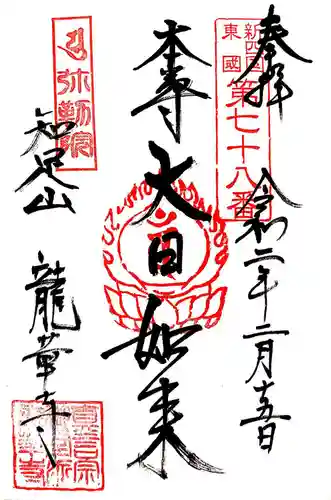 奉拝
令和二年二月十五日
新四国
東國
第七十八番
本尊
大日如来
弥勒院
知足山
龍華寺
真言宗